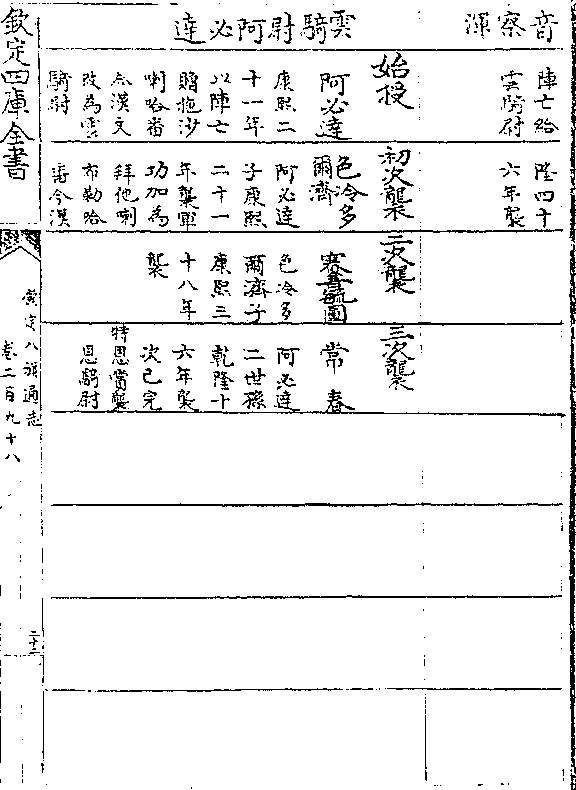 音察渾
陣亡給
雲騎尉
隆四十
六年襲
雲騎尉阿必達
始授
阿必達
康熙二
十一年
以陣亡
贈拖沙
喇哈番
今漢文
改為雲
騎尉
初次襲
色冷多
爾濟
阿必達
子康熙
二十一
年襲軍
功加為
拜他喇
布勒哈
番今漢
二次襲
色冷多
爾濟子
康熙三
十八年
襲
三次襲
常春
阿必達
二世孫
乾隆十
六年襲
次已完
特恩賞襲
恩騎尉
欽定四庫全書
欽定八旗通志
卷二百九十八
二十二